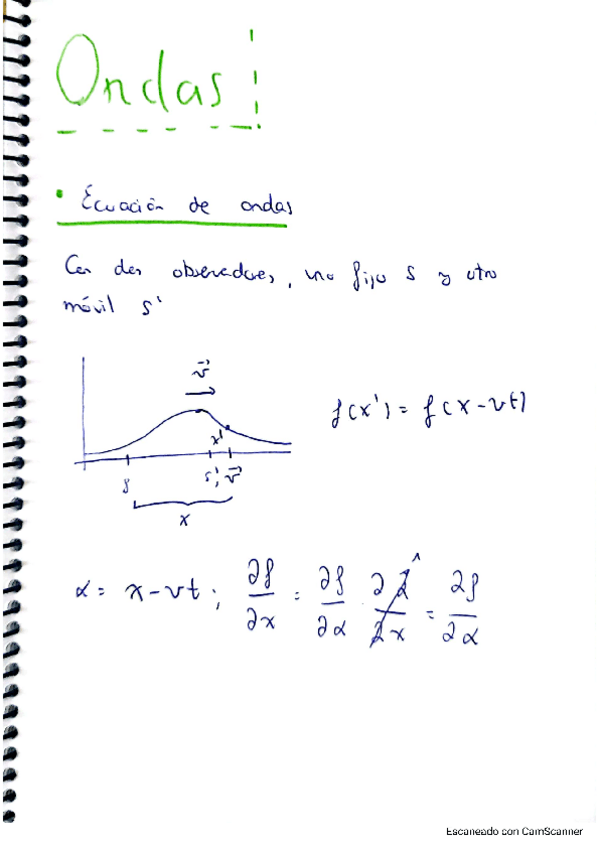 Ondas
• Ecuación de ondas
Con dos observadores, uno fijo S y otro
móvil S'
v⃗
f(x') = f(x-vt)
x'
S S'; v⃗
x
α = x-vt; ∂f/∂x = ∂f/∂α · ∂α/∂x 1 = ∂f/∂α
Escaneado con CamScanner